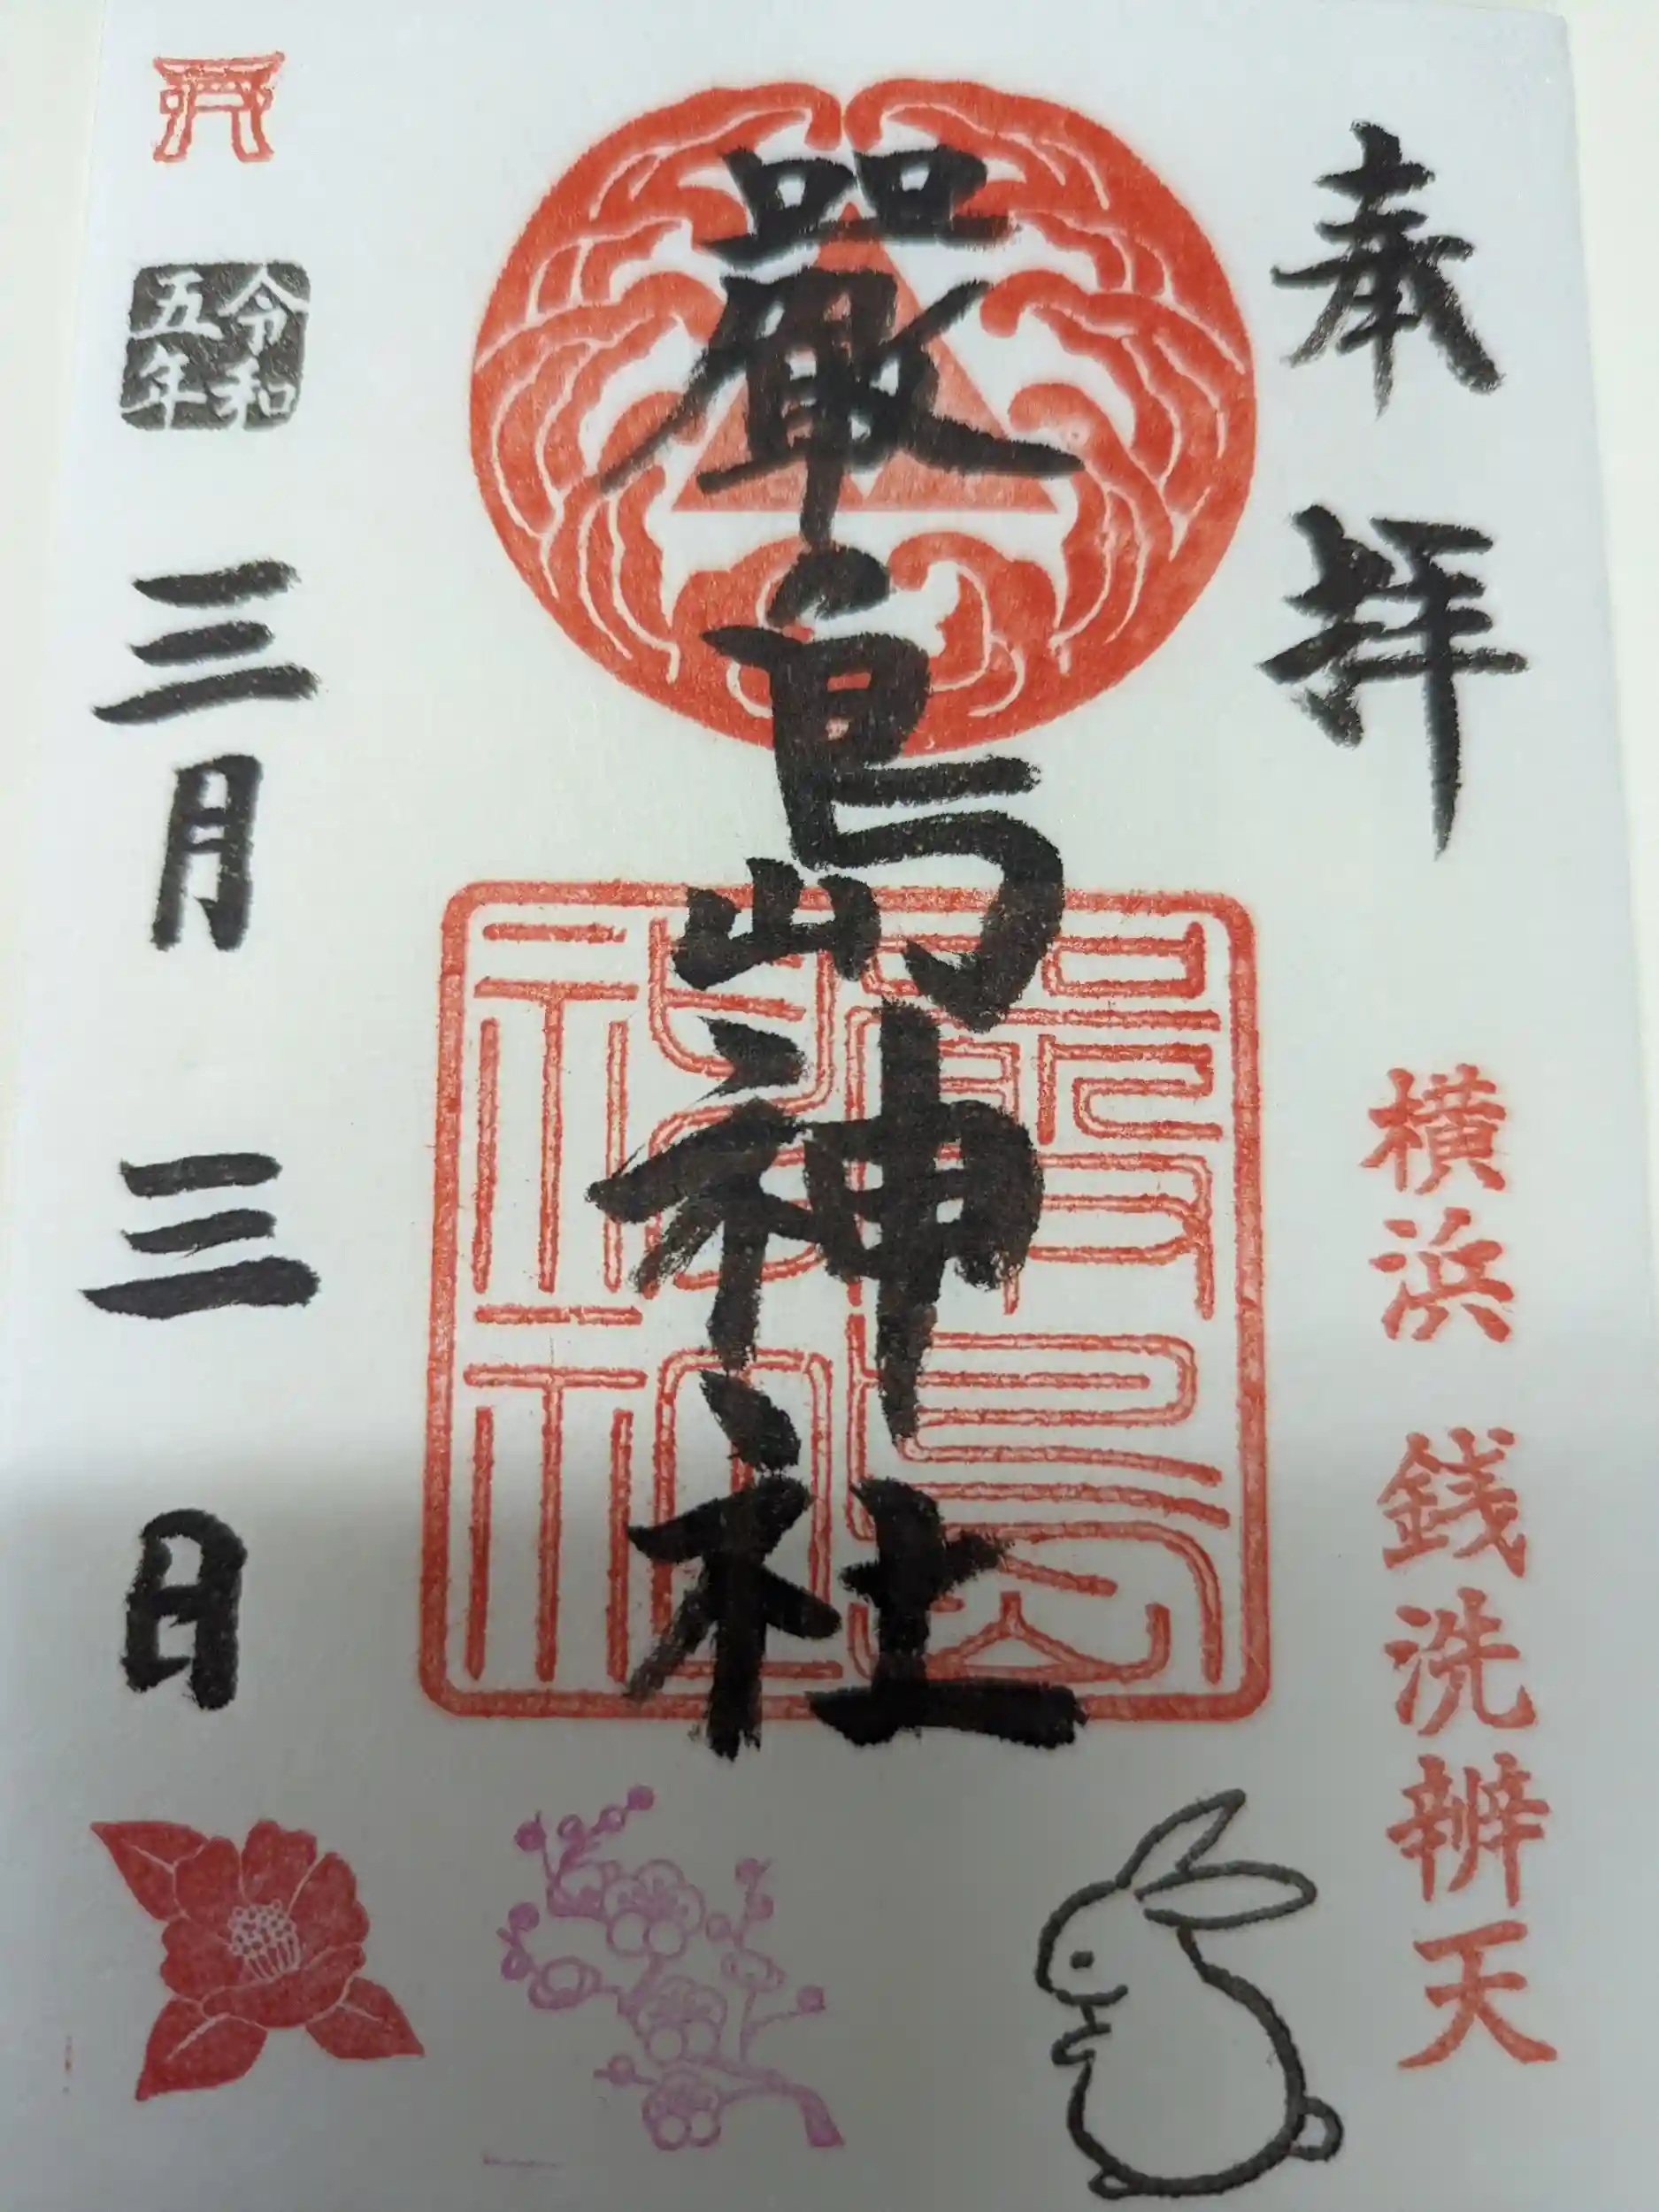 奉拝
横浜 銭洗辨天
嚴島神社
嚴島神社
令和五年
三月三日